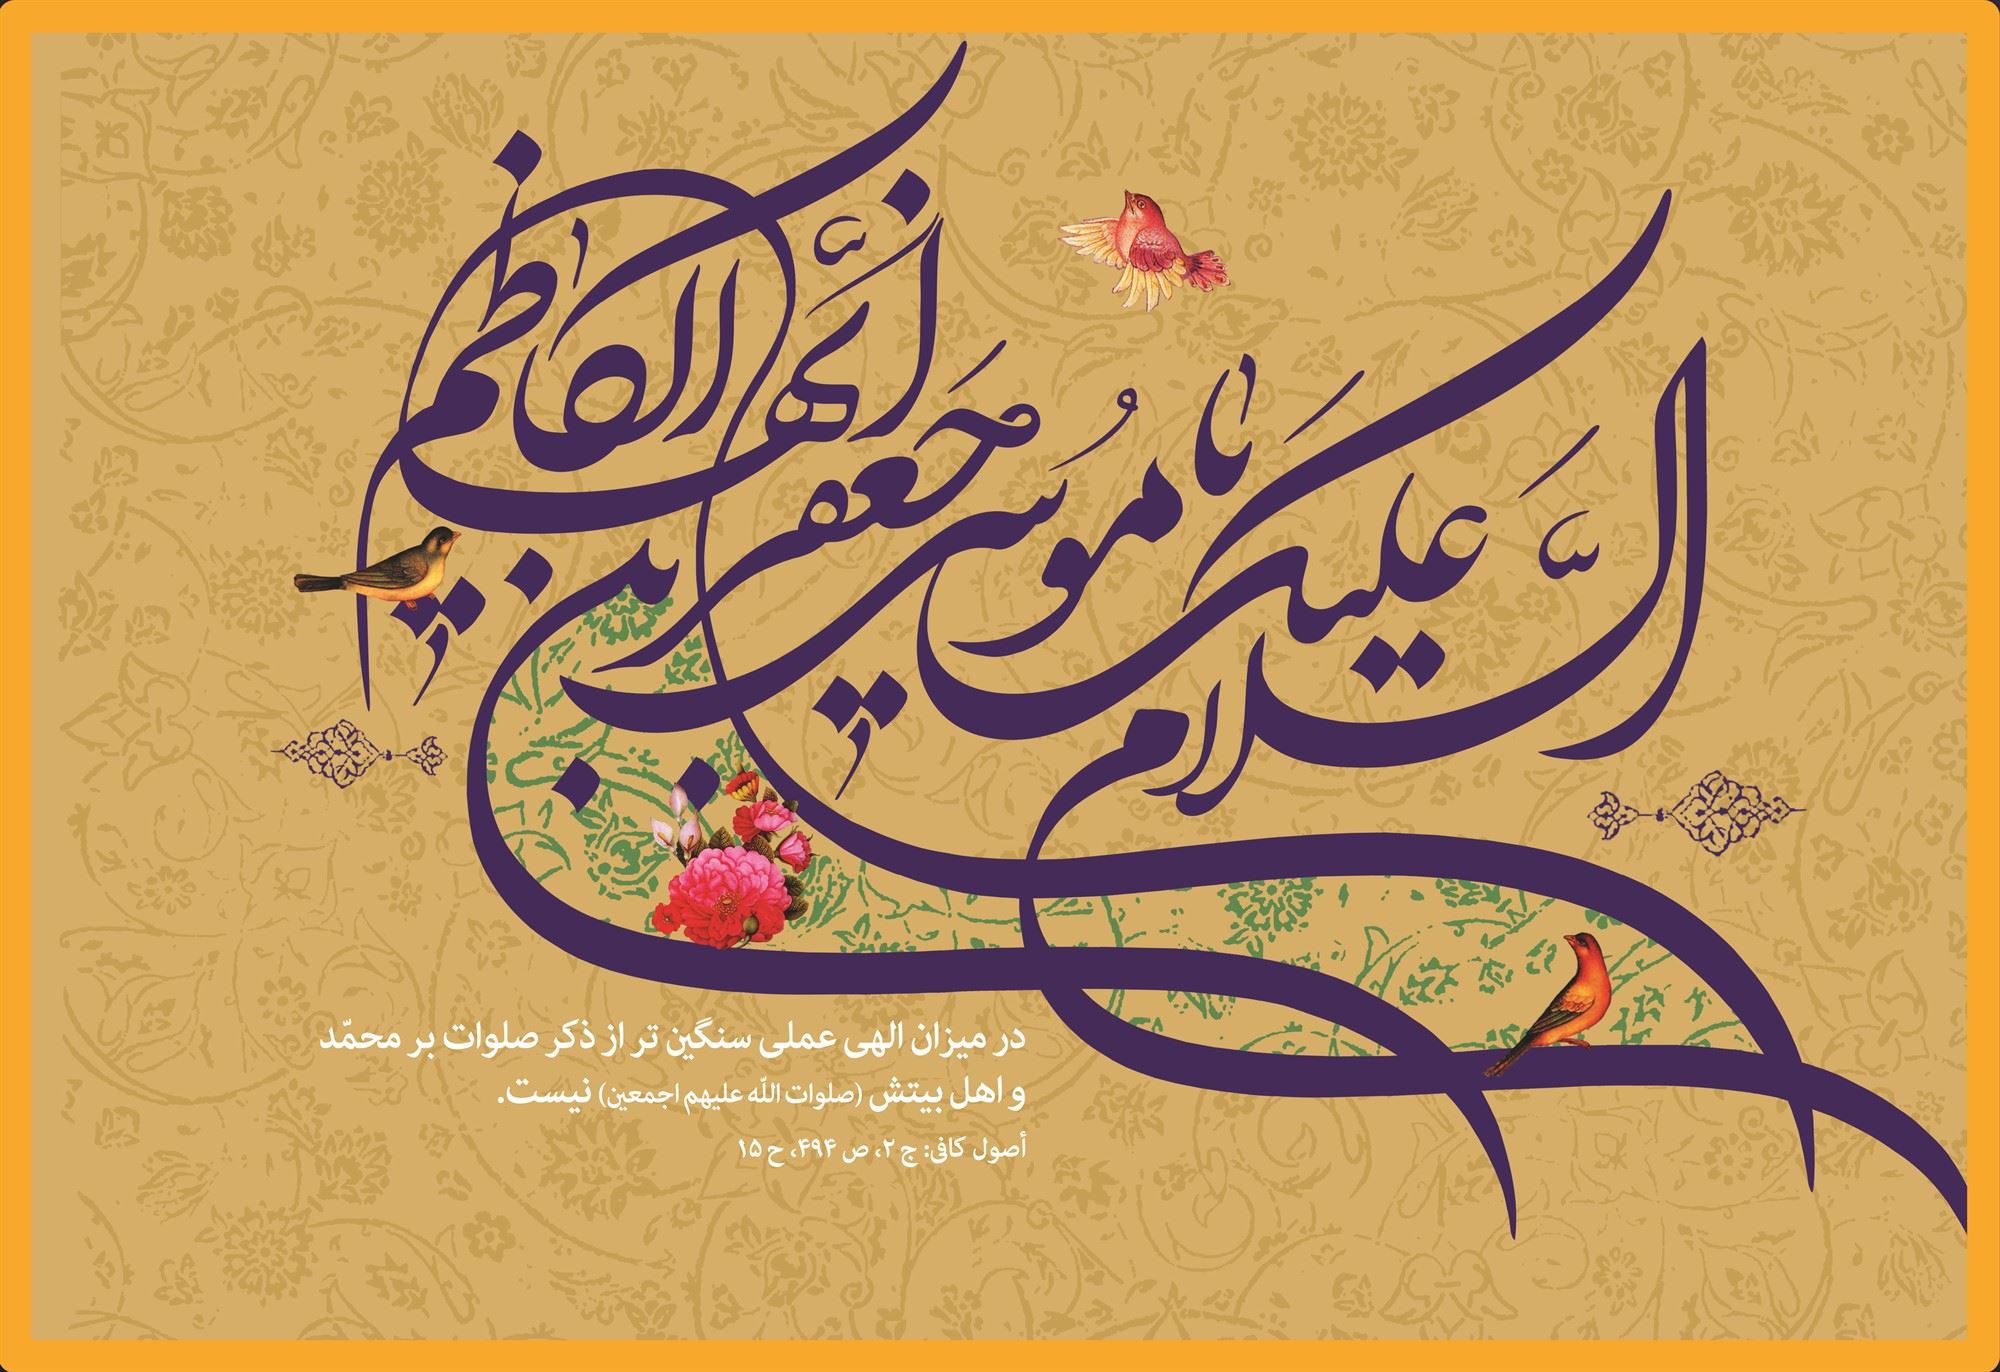 السَّلام علیک یا مُوسی بن جَعفر أیُّها الکاظم
در میزان الهی عملی سنگین تر از ذکر صلوات بر محمّد
و اهل بیتش (صلوات اللّه علیهم اجمعین) نیست.
أصول کافی: ج ۲، ص ۴۹۴، ح ۱۵